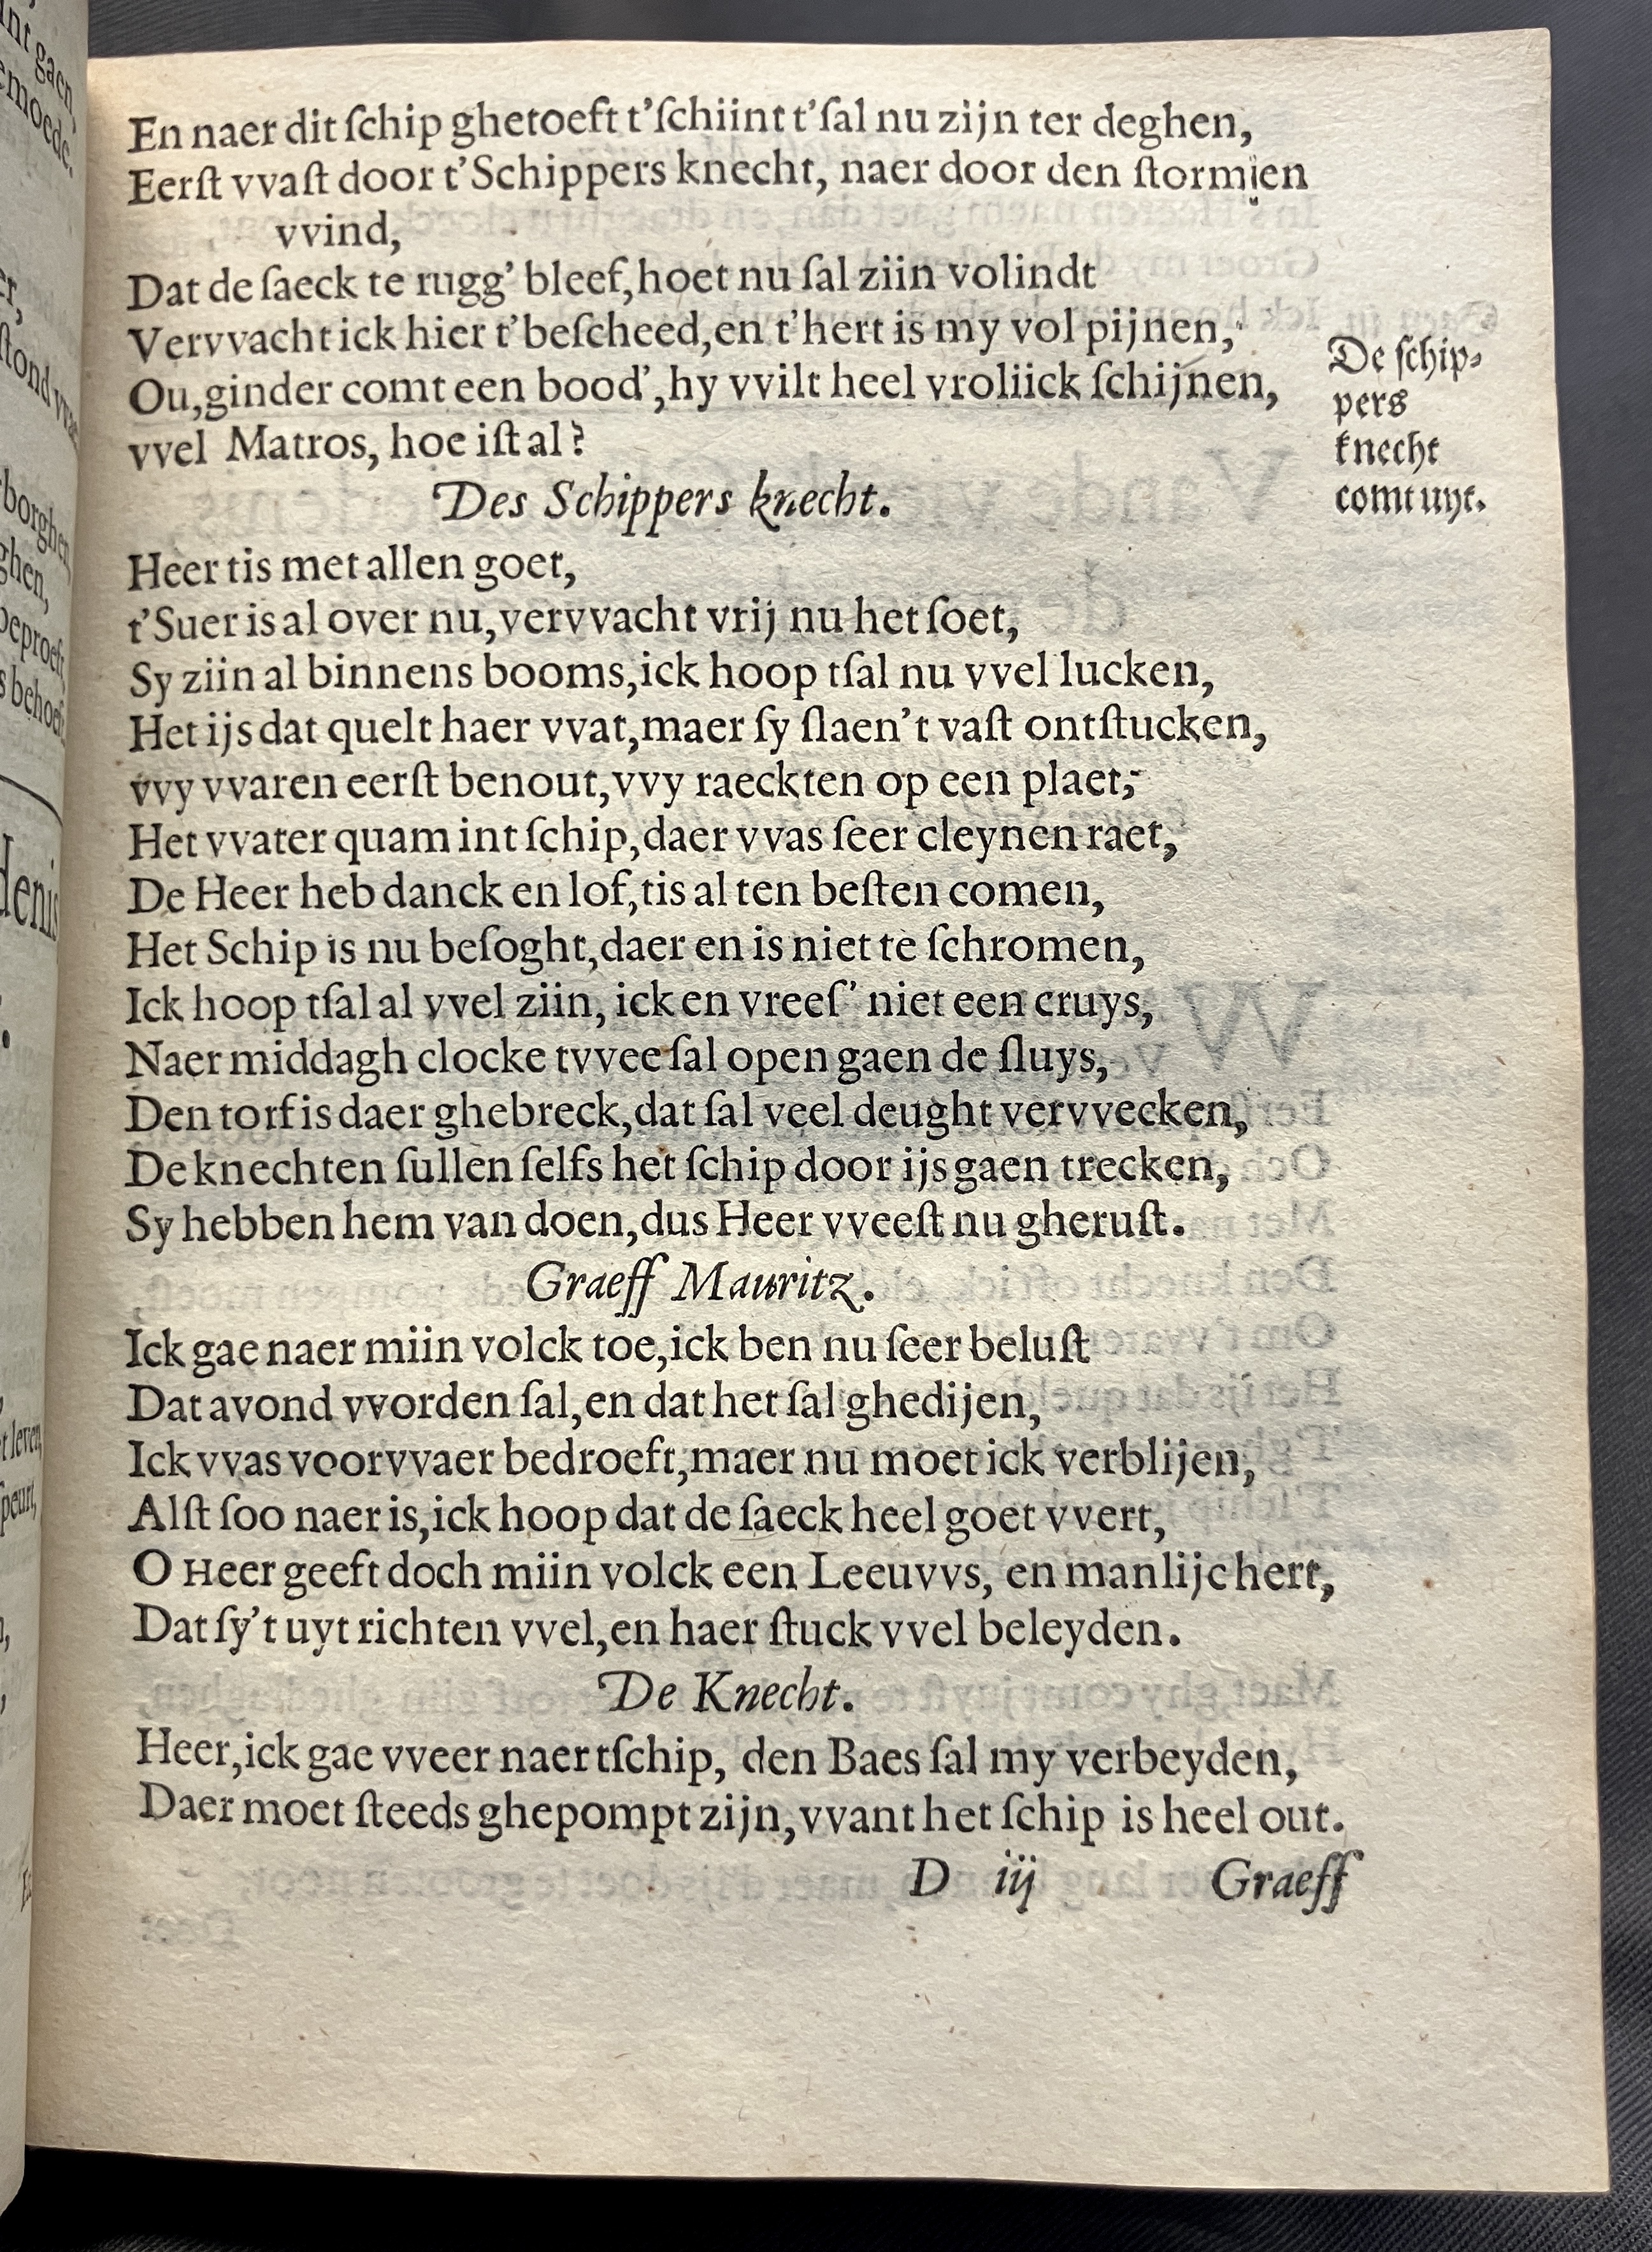 En naer dit ſchip ghetoeft t'ſchiint t'ſal nu zijn ter deghen,
Eerſt vvaſt door t'Schippers knecht, naer door den ſtormien
vvind,
Dat de ſaeck te rugg' bleef, hoet nu ſal ziin volindt
Vervvacht ick hier t'beſcheed, en t'hert is my vol pijnen,
Ou, ginder comt een bood', hy vvilt heel vroliick ſchijnen,
vvel Matros, hoe iſt al?
De ſchip-
pers
knecht
comt uyt.
Des Schippers knecht.
Heer tis met allen goet,
t'Suer is al over nu, vervvacht vrij nu het ſoet,
Sy ziin al binnens booms, ick hoop tſal nu vvel lucken,
Het ijs dat quelt haer vvat, maer ſy ſlaen't vaſt ontſtucken,
vvy vvaren eerſt benout, vvy raeckten op een plaet,
Het vvater quam int ſchip, daer vvas ſeer cleynen raet,
De Heer heb danck en lof, tis al ten beſten comen,
Het Schip is nu beſoght, daer en is niet te ſchromen,
Ick hoop tſal al vvel ziin, ick en vreeſ' niet een cruys,
Naer middagh clocke tvvee ſal open gaen de ſluys,
Den torf is daer ghebreck, dat ſal veel deught vervvecken,
De knechten ſullen ſelfs het ſchip door ijs gaen trecken,
Sy hebben hem van doen, dus Heer vveeſt nu gheruſt.
Graeff Mauritz.
Ick gae naer miin volck toe, ick ben nu ſeer beluſt
Dat avond vvorden ſal, en dat het ſal ghedijen,
Ick vvas voorvvaer bedroeft, maer nu moet ick verblijen,
Alſt ſoo naer is, ick hoop dat de ſaeck heel goet vvert,
O Heer geeft doch miin volck een Leeuvvs, en manlijc hert,
Dat ſy't uyt richten vvel, en haer ſtuck vvel beleyden.
De Knecht.
Heer, ick gae vveer naer tſchip, den Baes ſal my verbeyden,
Daer moet ſteeds ghepompt zijn, vvant het ſchip is heel out.
D iij Graeff